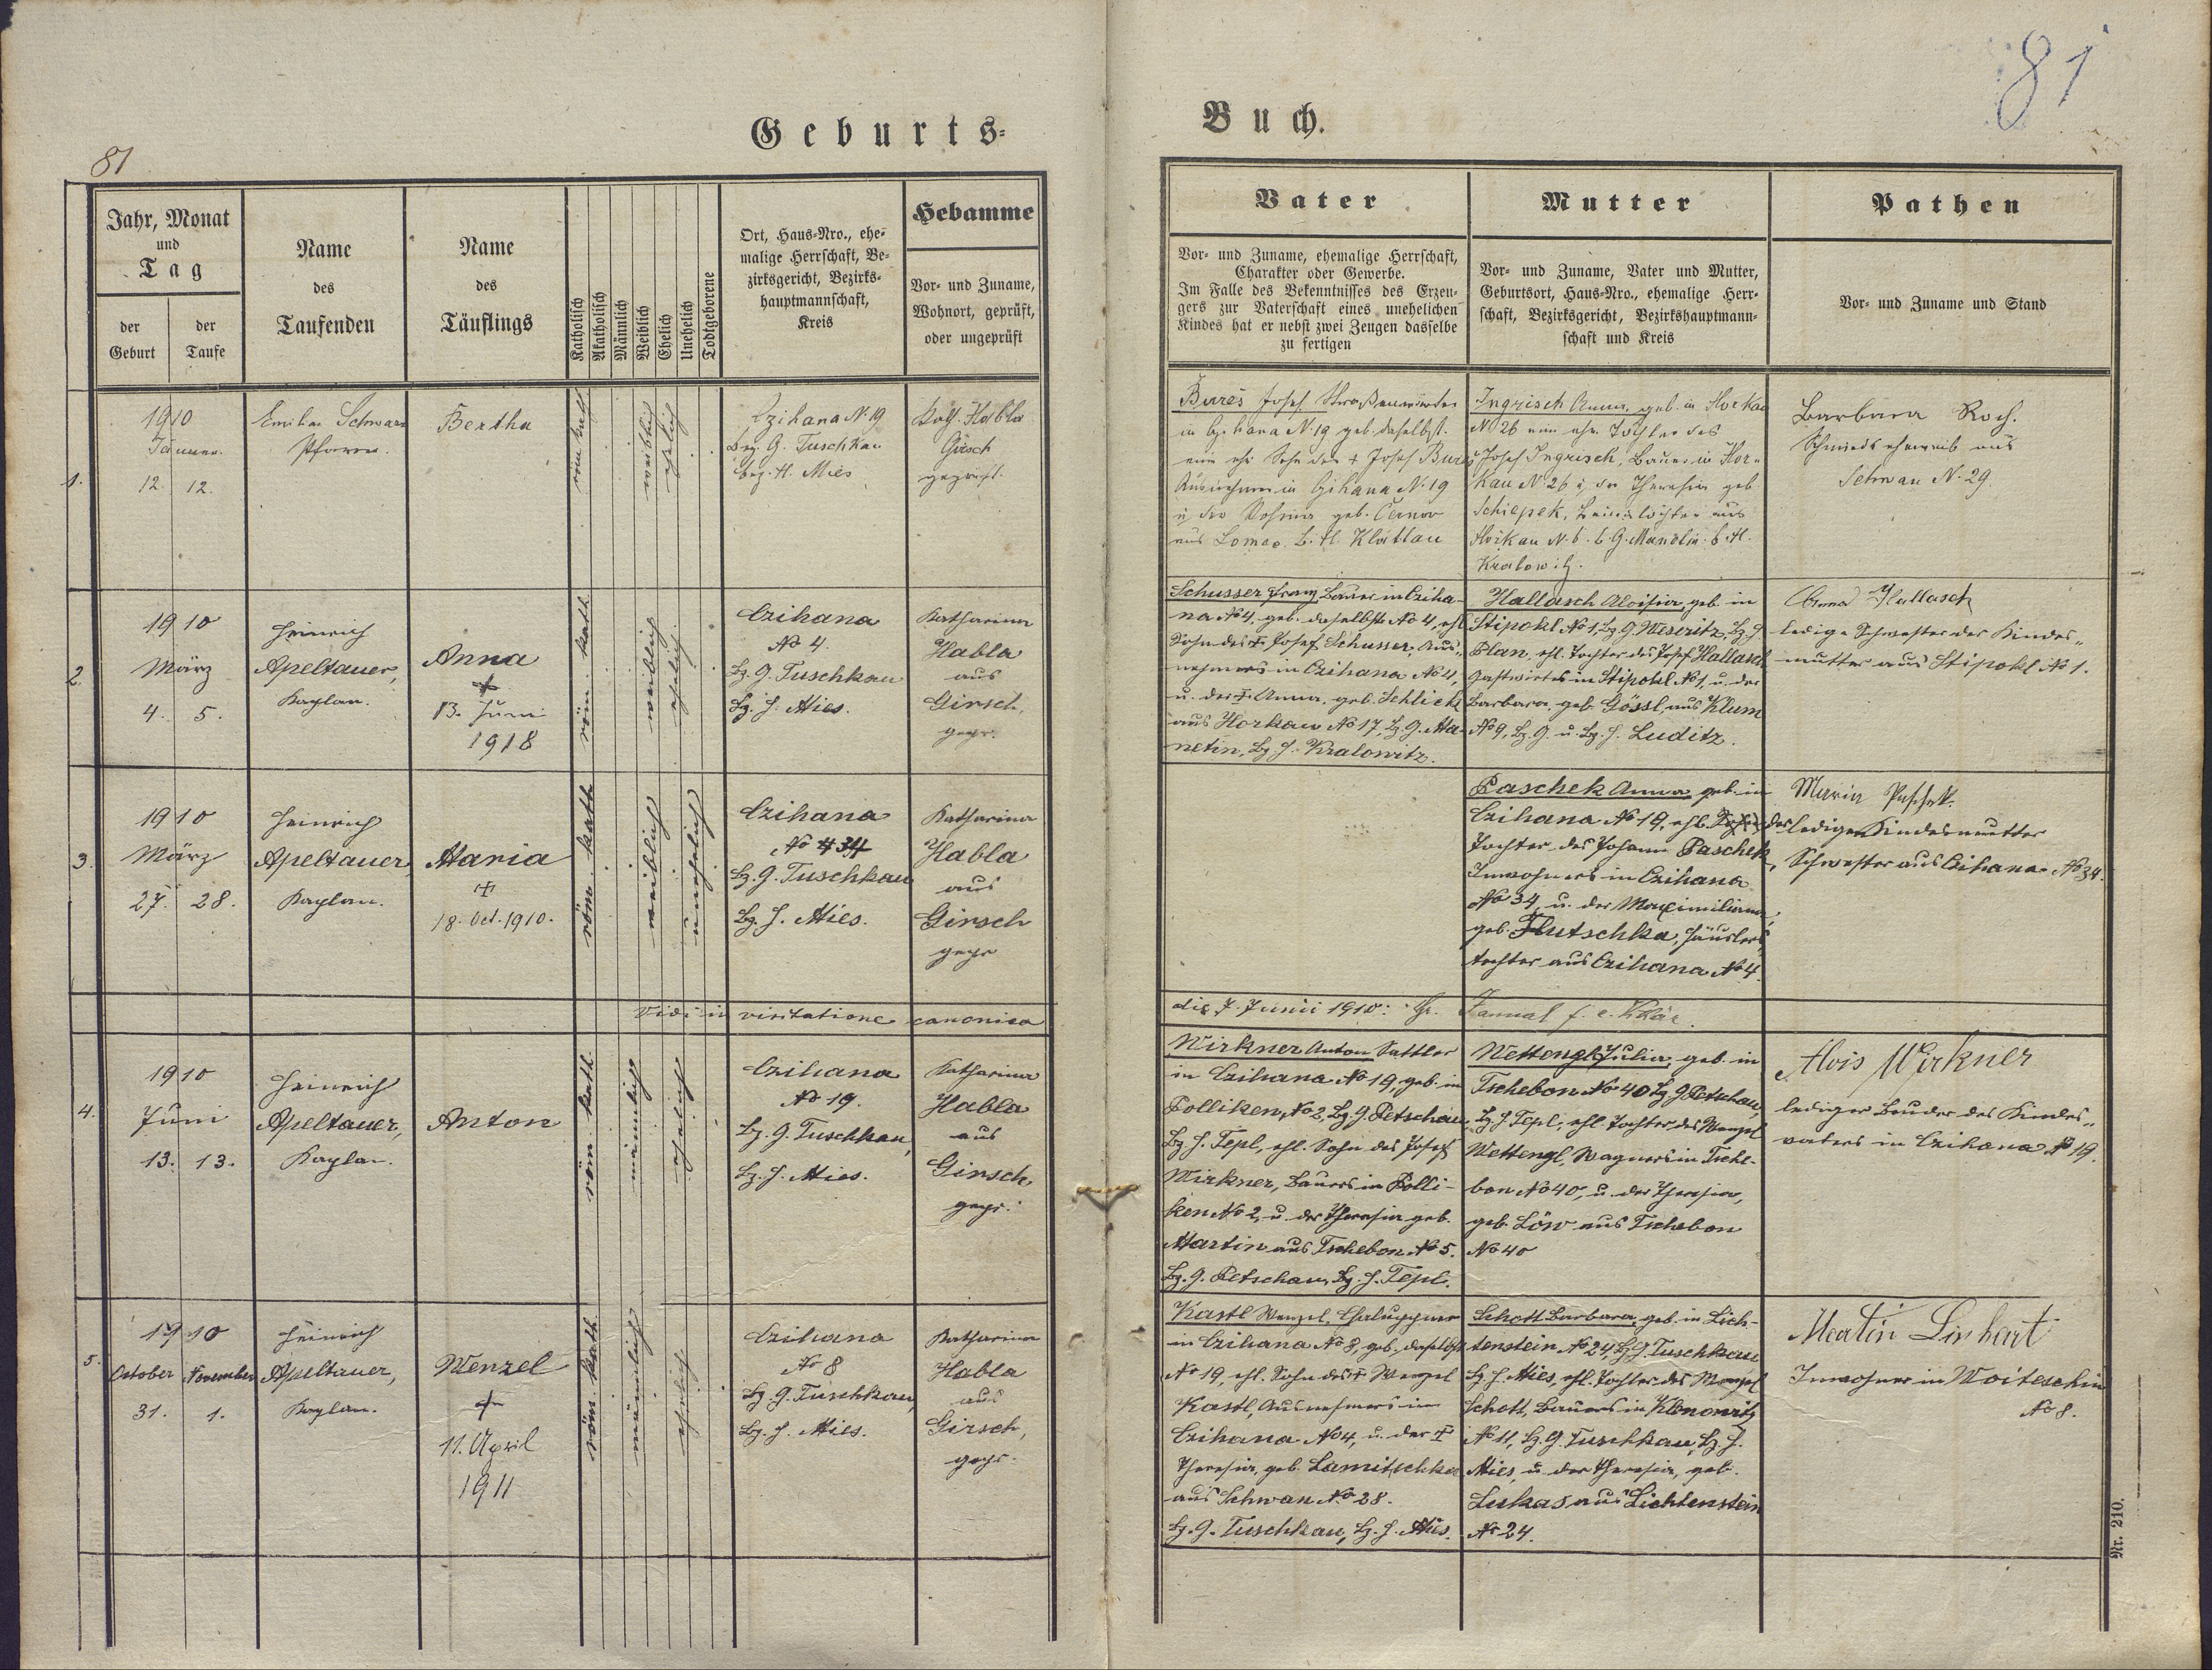 81
81
Geburts-
Buch.
Jahr, Monat
und
Tag
der
Geburt
der
Taufe
Name
des
Taufenden
Name
des
Täuflings
Katholisch
Akatholisch
Männlich
Weiblich
Ehelich
Unehelich
Todtgeborene
Ort, Haus-Nro., ehe-
malige Herrschaft, Be-
zirksgericht, Bezirks-
hauptmannschaft,
Kreis
Hebamme
Vor- und Zuname,
Wohnort, geprüft,
oder ungeprüft
Vater
Vor- und Zuname, ehemalige Herrschaft,
Charakter oder Gewerbe.
Im Falle des Bekenntnisses des Erzeu-
gers zur Vaterschaft eines unehelichen
Kindes hat er nebst zwei Zeugen dasselbe
zu fertigen
Mutter
Vor- und Zuname, Vater und Mutter,
Geburtsort, Haus-Nro., ehemalige Herr-
schaft, Bezirksgericht, Bezirkshauptmann-
schaft und Kreis
Pathen
Vor- und Zuname und Stand
1.
1910
Jänner.
12. 12.
Emilian Schwarz
Pfarrer.
Bertha
röm. kath
weiblich
ehelich
Czihana N. 19
Bez. G. Tuschkau
bez. H. Mies
Kath. Habla
Girsch
geprüft.
Bureš Josef
in Czihana N. 19 geb. daselbst.
ein ehe. Sohn des + Josef Bureš
in Czihana N. 19
geb. Černov
aus Lomec B. H. Klattau
Ingrisch Anna, geb. in Horkau
N 26 eine ehe. Tochter des
Josef Ingrisch, Bauer in Hor-
kau N. 26 u. der Theresia geb.
Schiepek, aus
N. 6. b. G. Manetin b. H.
Kralowitz.
Barbara Koch.
Schmiedseheweib aus
Schwan N. 29.
2.
1910
März
4. 5.
Heinrich
Apeltauer,
Kaplan.
Anna
+
13. Juni
1918
röm. kath.
weiblich
ehelich.
Czihana
No 4.
Bz. G. Tuschkau
Bz. H. Mies.
Katharina
Habla
aus
Girsch,
gepr.
Schusser Franz, Bauer in Cziha-
na No 4, geb. daselbst No 4, ehl.
Sohn des + Josef Schusser, Aus-
nehmers in Czihana No 4,
u. der + Anna, geb. Schlick
aus Horkau No 17, Bz. G. Ma-
netin, Bz. H. Kralowitz.
Hallasch Aloisia, geb. in
Stipokl No 1, Bz. G. Weseritz, Bz. H.
Plan, ehl. Tochter des Josef Hallasch
Gastwirtes in Stipokl No 1, u. der
Barbara, geb. Gössl, aus Klum
No 9, Bz. G. u. Bz. H. Luditz.
Anna Hallasch
ledige Schwester der Kindes-
mutter aus Stipokl No 1.
3.
1910
März
27. 28.
Heinrich
Apeltauer,
Kaplan.
Maria
+
18. Oct. 1910.
röm. kath
weiblich
unehelich
Czihana
No 34
Bz. G. Tuschkau
Bz. H. Mies.
Katharina
Habla
aus
Girsch
gepr
Paschek Anna, geb. in
Czihana No 19, ehl.
Tochter des Johann Paschek,
Inwohners in Czihana
No 34, u. der Maximiliana,
geb. Hutschka, Häuslers-
tochter aus Czihana No 4.
Maria Paschek
ledige Kindesmutter
Schwester aus Czihana No 34.
Vidi in visitatione canonica
die 7. Junii 1910:
4.
1910
Juni
13. 13.
Heinrich
Apeltauer,
Kaplan.
Anton
röm. kath.
männlich
ehelich
Czihana
No 19.
Bz. G. Tuschkau,
Bz. H. Mies.
Katharina
Habla
aus
Girsch,
gepr.
Wirkner Anton Sattler
in Czihana No 19, geb. in
Polliken, No 2, Bz. G. Petschau
Bz. H. Tepl, ehl. Sohn des Josef
Wirkner, Bauers in Polli-
ken No 2, u. der Theresia geb.
Martin aus Tschebon No 5.
Bz. G. Petschau, Bz. H. Tepl.
Wettengl Julia, geb. in
Tschebon No 40 Bz. G. Petschau,
Bz. H. Tepl, ehl. Tochter des Wenzel
Wettengl, Wagners in Tsche-
bon No 40, u. der Theresia,
geb. Löw aus Tschebon
No 40
Alois Wirkner
lediger Bruder des Kindes-
vaters in Czihana No 19.
5.
1910
October November
31. 1.
Heinrich
Apeltauer,
Kaplan.
Wenzel
+
11. April
1911
röm. kath.
männlich
ehelich
Czihana
No 8
Bz. G. Tuschkau,
Bz. H. Mies.
Katharina
Habla
aus
Girsch,
gepr.
Kastl Wenzel, Chaluppner
in Czihana No 8, geb. daselbst
No 19, ehl. Sohn des + Wenzel
Kastl, Ausnehmers in
Czihana No 4, u. der +
Theresia, geb. Lamitschka
aus Schwan No 28.
Bz. G. Tuschkau, Bz. H. Mies.
Schott Barbara, geb. in Lich-
tenstein No 24, Bz. G. Tuschkau
Bz. H. Mies, ehl. Tochter des Wenzel
Schott, Bauers in Klenowitz
No 11, Bz. G. Tuschkau, Bz. H.
Mies, u. der Theresia, geb.
Lukas aus Lichtenstein
No 24.
Martin Linhart
Inwohner in Woiteschin
No 8.
Nr. 210.